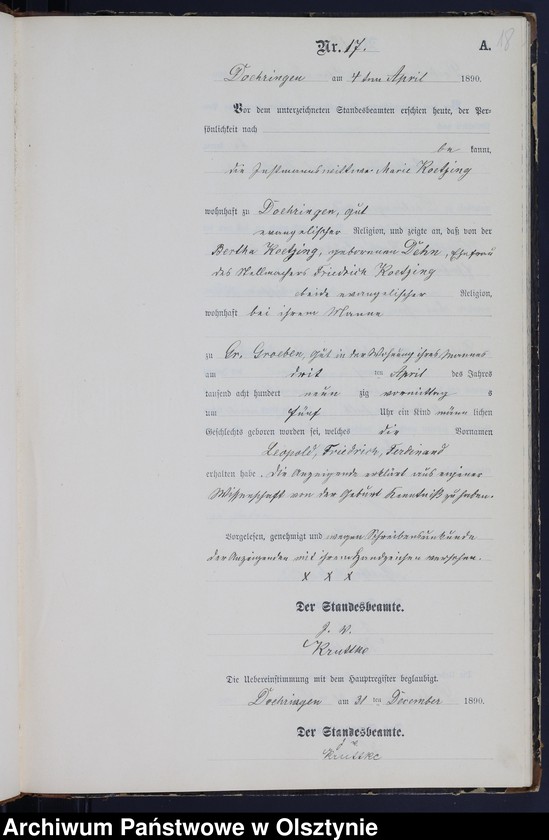 18
Nr. 17.
A.
Doehringen am 4 ten April 1890.
Vor dem unterzeichneten Standesbeamten erschien heute, der Per-
sönlichkeit nach
be kannt,
die Instmannswittwe Marie Koetzing
wohnhaft zu Doehringen, Gut
evangelischer Religion, und zeigte an, daß von der
Bertha Koetzing, geborenen Dehn, Ehefrau
des Stellmachers Friedrich Koetzing
beide evangelischer Religion,
wohnhaft bei ihrem Manne
zu Gr. Groeben, Gut in der Wohnung ihres Mannes
am dritten April des Jahres
tausend acht hundert neun zig vormittag s
um fünf Uhr ein Kind männ lichen
Geschlechts geboren worden sei, welches die Vornamen
Leopold, Friedrich, Ferdinand
erhalten habe. Die Anzeigende erklärt aus eigener
Wissenschaft von der Geburt Kenntniß zu haben.
Vorgelesen, genehmigt und wegen Schreibensunkunde
der Anzeigenden mit ihrem Handzeichen versehen.
X X X
Der Standesbeamte.
J. V.
Kruttke
Die Uebereinstimmung mit dem Hauptregister beglaubigt.
Doehringen am 31 ten December 1890.
Der Standesbeamte.
Kruttke
Archiwum Państwowe w Olsztynie